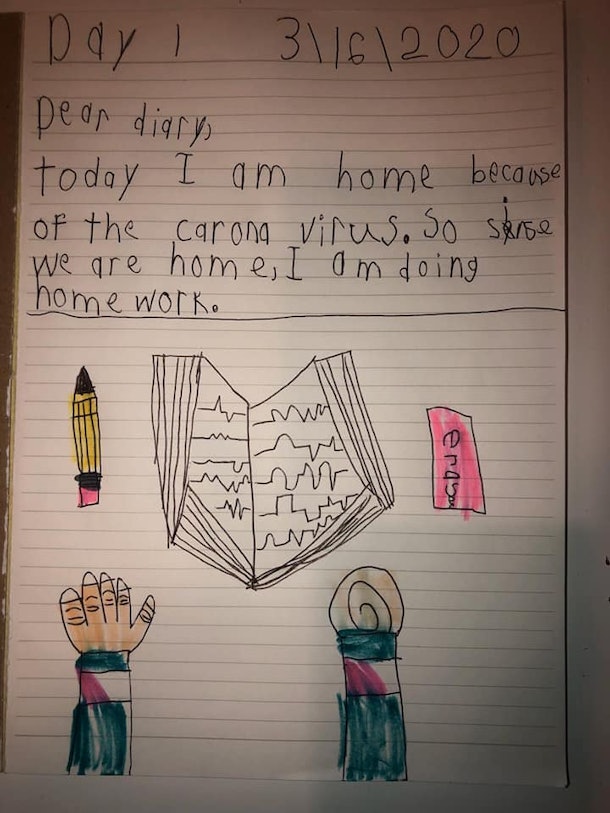 Day 1 3\16\2020
Dear diary,
today I am home because
of the carona virus. So sinse
we are home, I am doing
home work.